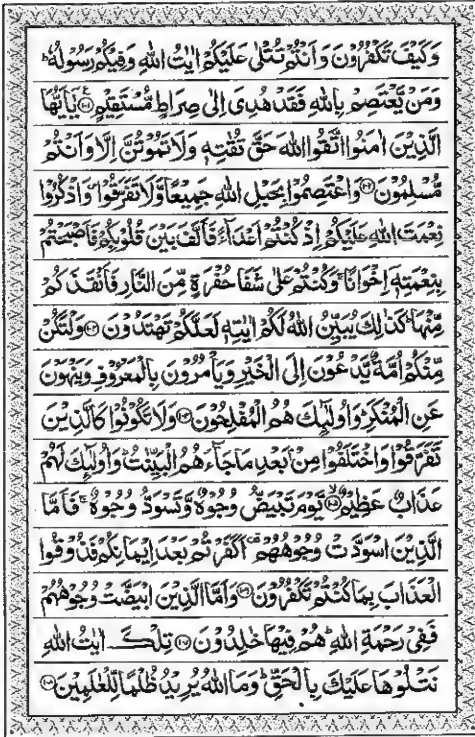 وَكَيْفَ تَكْفُرُوْنَ وَاَنْتُمْ تُتْلٰى عَلَيْكُمْ اٰيٰتُ اللّٰهِ وَفِيْكُمْ رَسُوْلُهٗ ؕ
وَمَنْ يَّعْتَصِمْ بِاللّٰهِ فَقَدْ هُدِىَ اِلٰى صِرَاطٍ مُّسْتَقِيْمٍ ۝۱۰۱ يٰۤاَيُّهَا
الَّذِيْنَ اٰمَنُوا اتَّقُوا اللّٰهَ حَقَّ تُقٰتِهٖ وَلَا تَمُوْتُنَّ اِلَّا وَاَنْتُمْ
مُّسْلِمُوْنَ ۝۱۰۲ وَاعْتَصِمُوْا بِحَبْلِ اللّٰهِ جَمِيْعًا وَّلَا تَفَرَّقُوْا ۪ وَاذْكُرُوْا
نِعْمَتَ اللّٰهِ عَلَيْكُمْ اِذْ كُنْتُمْ اَعْدَآءً فَاَلَّفَ بَيْنَ قُلُوْبِكُمْ فَاَصْبَحْتُمْ
بِنِعْمَتِهٖۤ اِخْوَانًا ۚ وَكُنْتُمْ عَلٰى شَفَا حُفْرَةٍ مِّنَ النَّارِ فَاَنْقَذَكُمْ
مِّنْهَا ؕ كَذٰلِكَ يُبَيِّنُ اللّٰهُ لَكُمْ اٰيٰتِهٖ لَعَلَّكُمْ تَهْتَدُوْنَ ۝۱۰۳ وَلْتَكُنْ
مِّنْكُمْ اُمَّةٌ يَّدْعُوْنَ اِلَى الْخَيْرِ وَيَاْمُرُوْنَ بِالْمَعْرُوْفِ وَيَنْهَوْنَ
عَنِ الْمُنْكَرِ ؕ وَاُولٰٓئِكَ هُمُ الْمُفْلِحُوْنَ ۝۱۰۴ وَلَا تَكُوْنُوْا كَالَّذِيْنَ
تَفَرَّقُوْا وَاخْتَلَفُوْا مِنْۢ بَعْدِ مَا جَآءَهُمُ الْبَيِّنٰتُ ؕ وَاُولٰٓئِكَ لَهُمْ
عَذَابٌ عَظِيْمٌ ۝۱۰۵ۙ يَّوْمَ تَبْيَضُّ وُجُوْهٌ وَّتَسْوَدُّ وُجُوْهٌ ۚ فَاَمَّا
الَّذِيْنَ اسْوَدَّتْ وُجُوْهُهُمْ ۟ اَكَفَرْتُمْ بَعْدَ اِيْمَانِكُمْ فَذُوْقُوا
الْعَذَابَ بِمَا كُنْتُمْ تَكْفُرُوْنَ ۝۱۰۶ وَاَمَّا الَّذِيْنَ ابْيَضَّتْ وُجُوْهُهُمْ
فَفِىْ رَحْمَةِ اللّٰهِ ؕ هُمْ فِيْهَا خٰلِدُوْنَ ۝۱۰۷ تِلْكَ اٰيٰتُ اللّٰهِ
نَتْلُوْهَا عَلَيْكَ بِالْحَقِّ ؕ وَمَا اللّٰهُ يُرِيْدُ ظُلْمًا لِّلْعٰلَمِيْنَ ۝۱۰۸